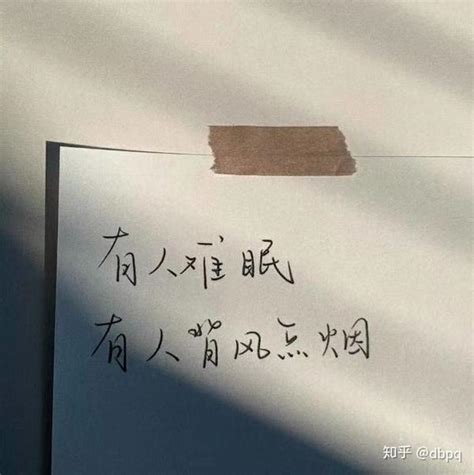 有人难眠
有人背风点烟
知乎 @dbpq